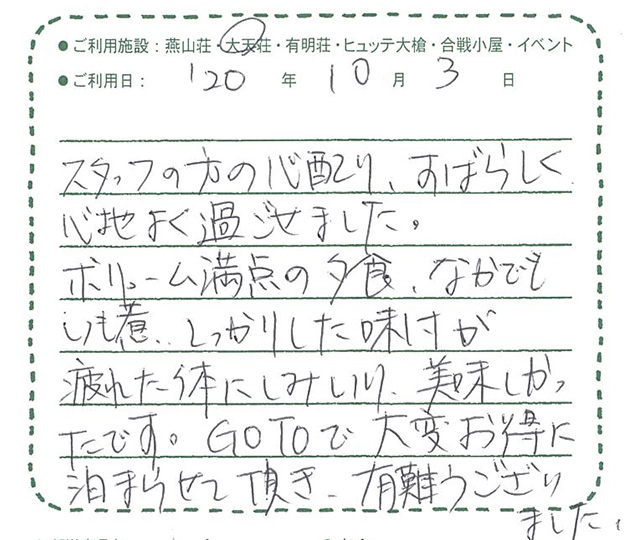 ●ご利用施設：燕山荘・大天荘・有明荘・ヒュッテ大槍・合戦小屋・イベント
●ご利用日： '20 年 10 月 3 日
スタッフの方の心配り、すばらしく
心地よく過ごせました。
ボリューム満点の夕食、なかでも
いも煮、しっかりした味付が
疲れた体にしみいり、美味しかっ
たです。GOTOで大変お得に
泊まらせて頂き、有難うござい
ました。